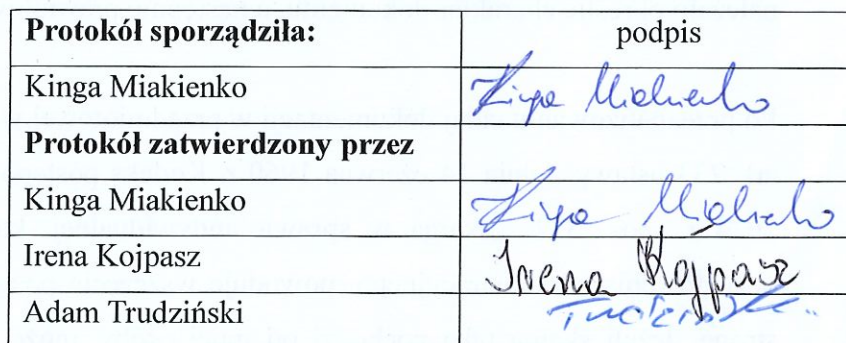 Protokół sporządziła: podpis
Kinga Miakienko Kinga Miakienko
Protokół zatwierdzony przez
Kinga Miakienko Kinga Miakienko
Irena Kojpasz Irena Kojpasz
Adam Trudziński